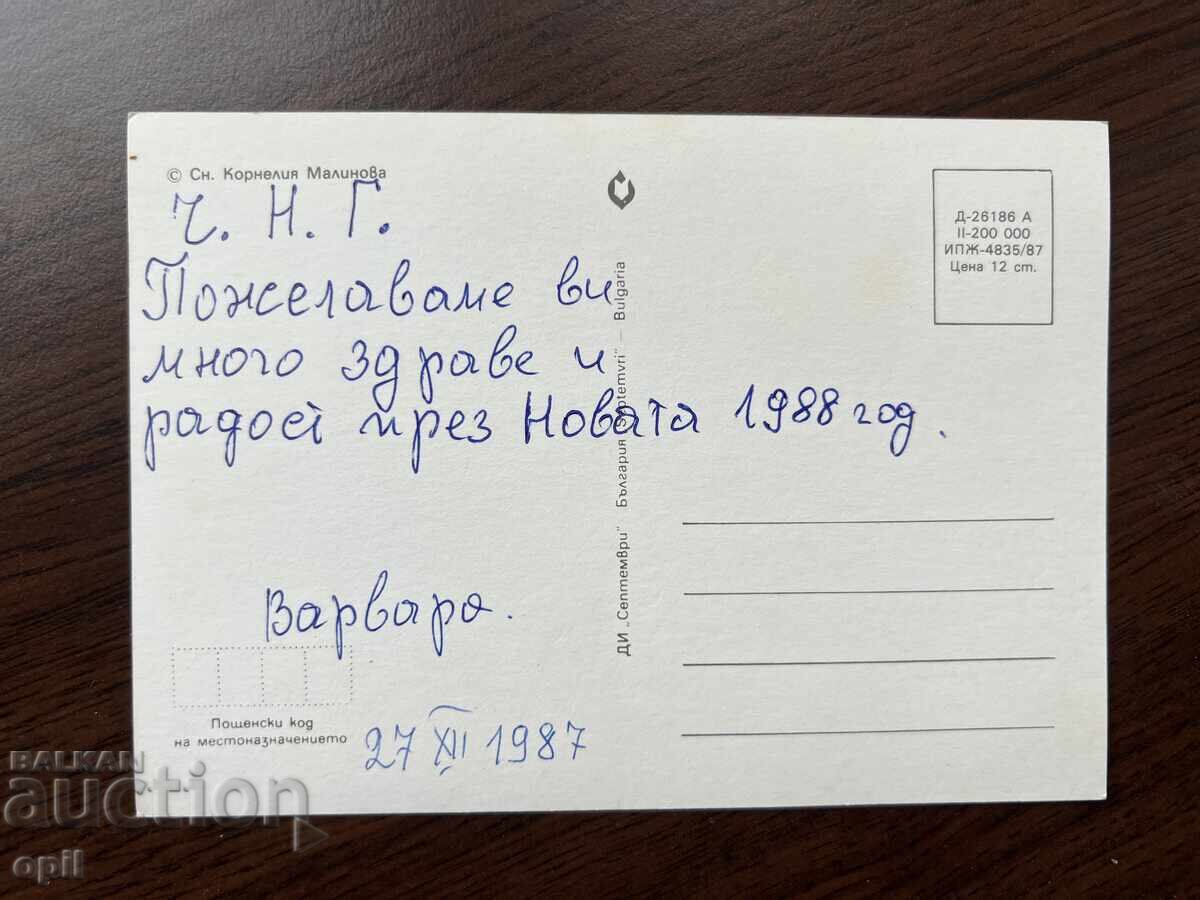 © Сн. Корнелия Малинова
Ч. Н. Г.
Пожелаваме ви
много здраве и
радост през Новата 1988 год.
Варвара.
27 XII 1987
Пощенски код
на местоназначението
ДИ „Септември" България „Septemvri" — Bulgaria
Д-26186 А
II-200 000
ИПЖ-4835/87
Цена 12 ст.
BALKAN
auction
opil